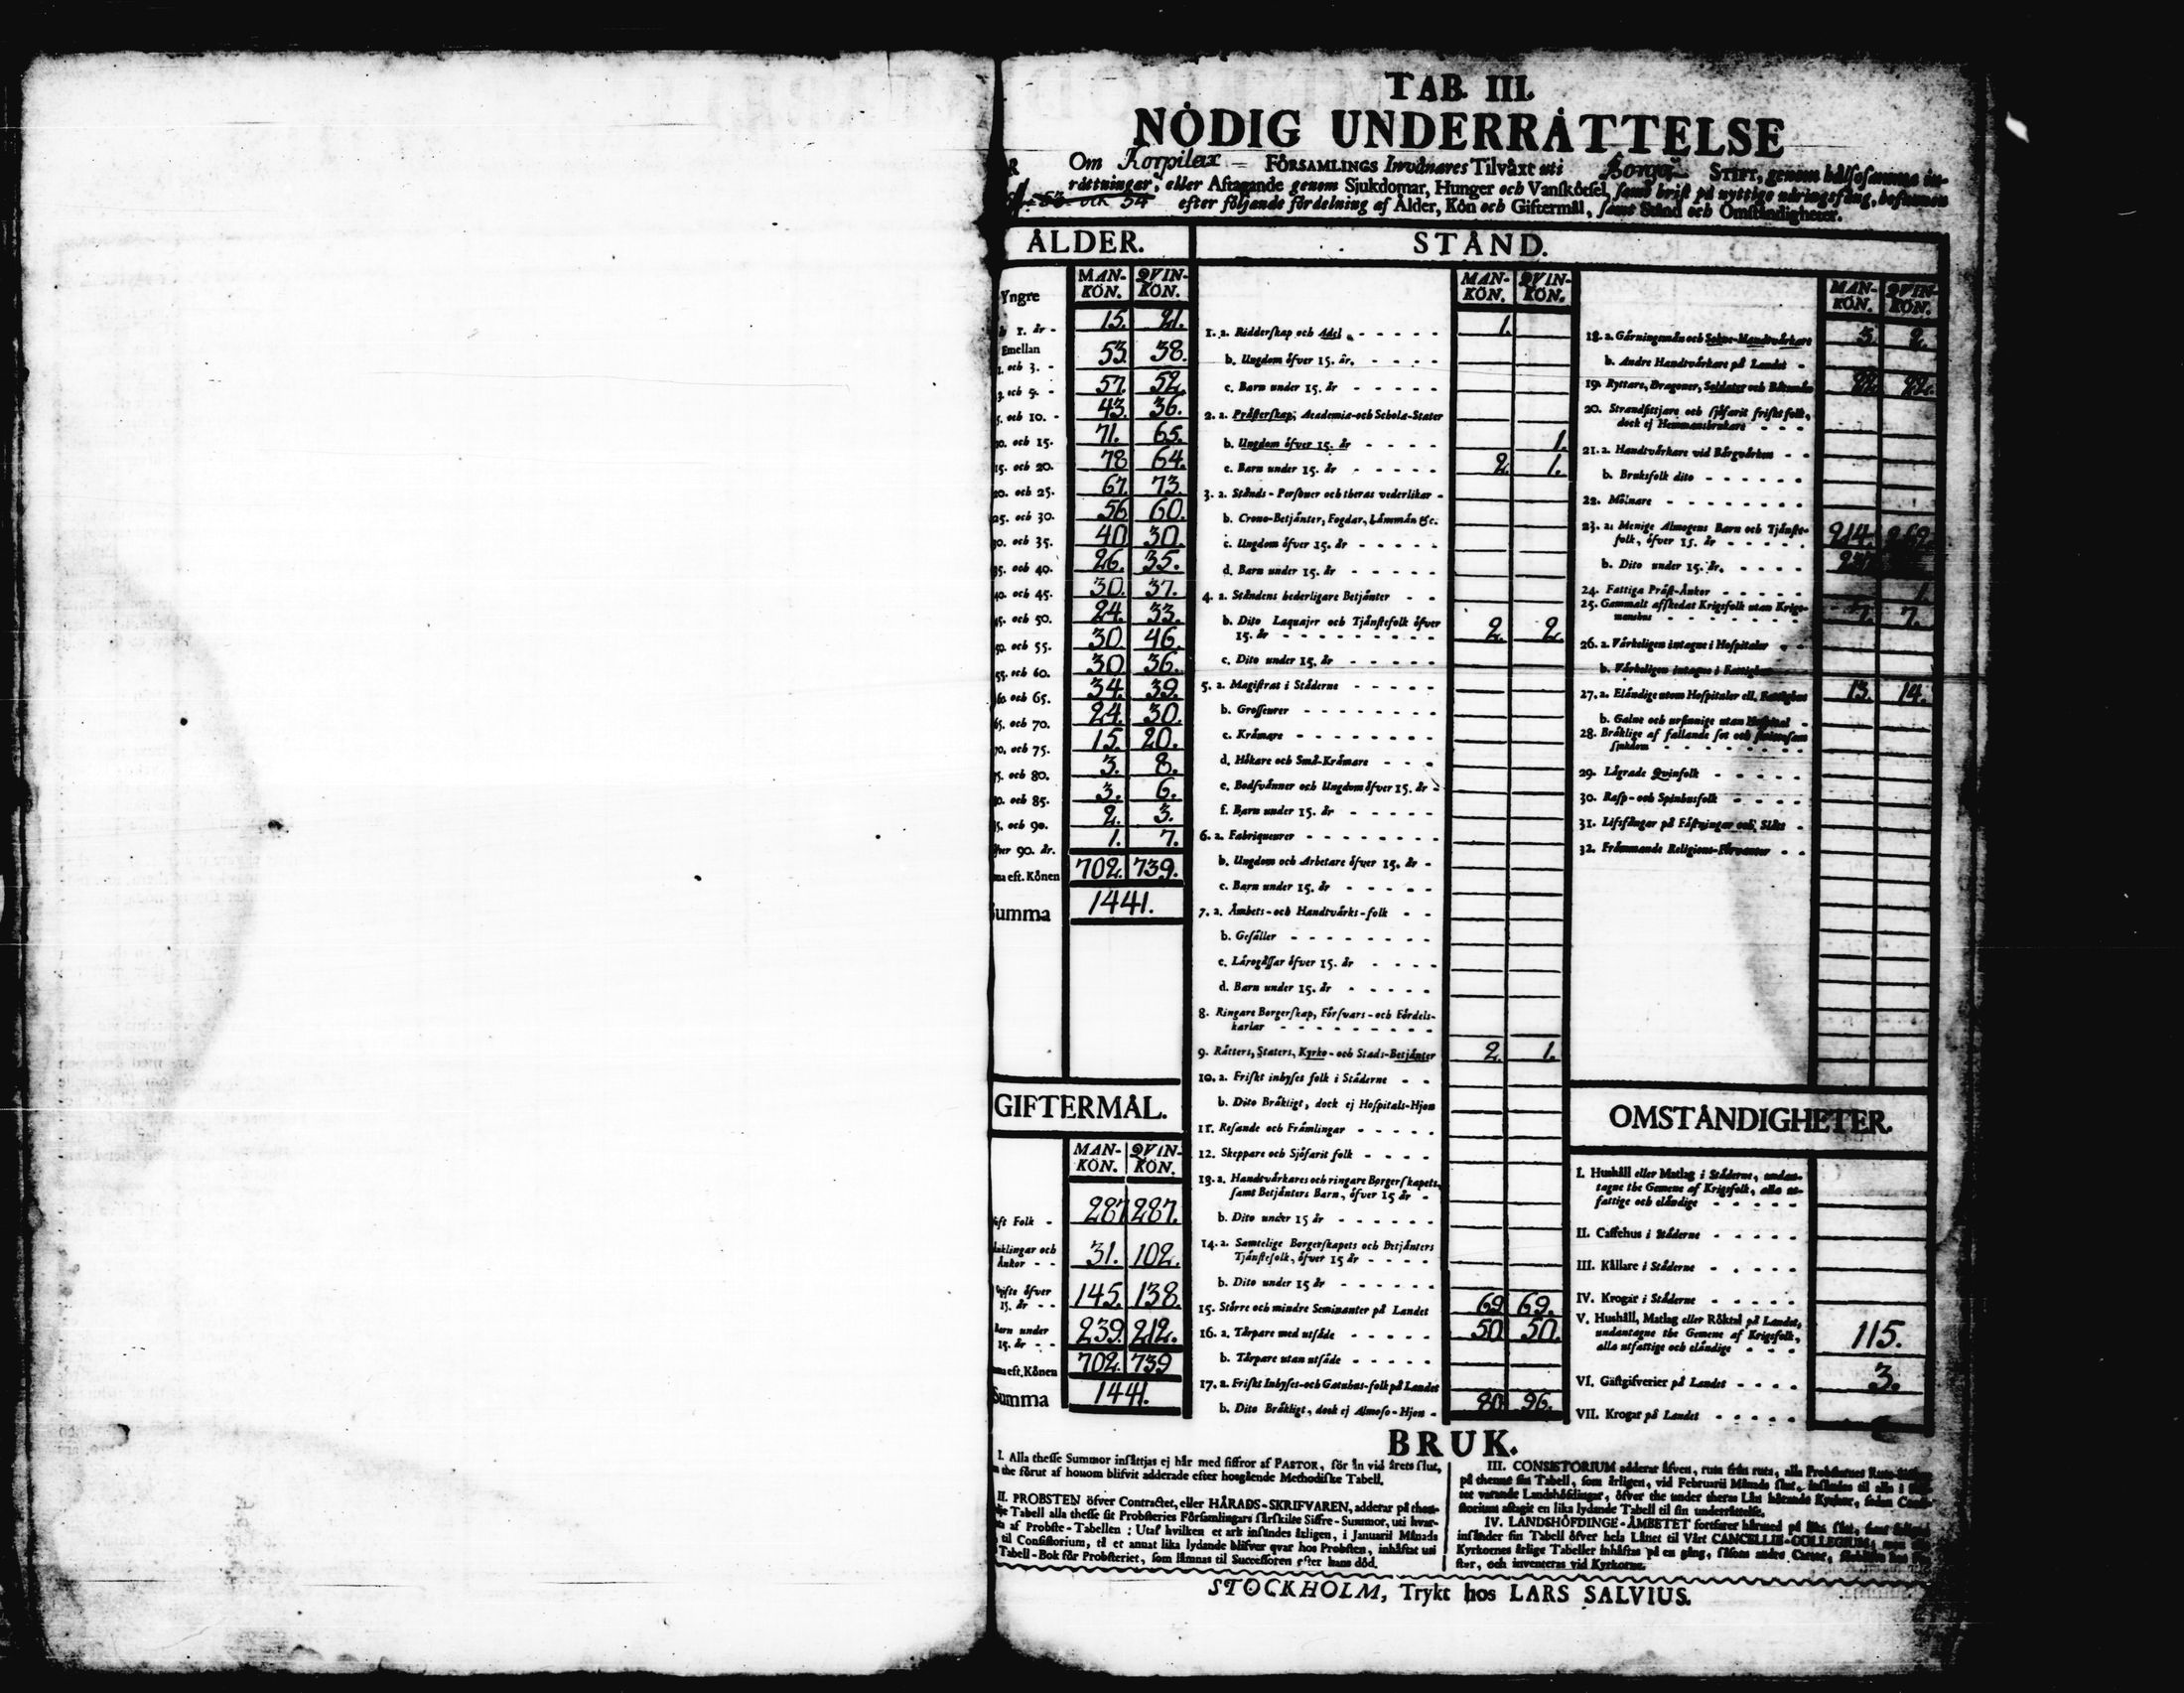 TAB. III.
NÖDIG UNDERRÅTTELSE
Om Korpilax FÖRSAMLINGS Invånares Tilväxt uti Borgå STIFT, genom hälsosamma in-
rättningar, eller Aftagande genom Sjukdomar, Hunger och Vanskötsel, samt brist på nyttige näringsfång, befunnen
53. och 54 efter följande fördelning af Ålder, Kön och Giftermål, samt Stånd och Omständigheter.
ÅLDER.
MAN-KÖN. QVIN-KÖN.
Yngre
1. år - 15. 21.
Emellan
1. och 3. - 53. 38.
3. och 5. - 57. 52.
5. och 10. - 43. 36.
10. och 15. 71. 65.
15. och 20. 78 64.
20. och 25. 67. 73.
25. och 30. 56 60.
30. och 35. 40 30.
35. och 40. 26. 35.
40. och 45. 30. 37.
45. och 50. 24. 33.
50. och 55. 30 46.
55. och 60. 30 36.
60. och 65. 34. 39.
65. och 70. 24. 30.
70. och 75. 15. 20.
75. och 80. 3. 8.
80. och 85. 3. 6.
85. och 90. 2. 3.
90. år. 1. 7.
eft. Könen 702. 739.
Summa 1441.
GIFTERMÅL.
MAN-KÖN. QVIN-KÖN.
Gift Folk - 287 287.
Enklingar och
Änkor - - 31. 102.
Ogifte öfver
15. år - - 145. 138.
Barn under
15. år - - 239. 212.
eft. Könen 702. 739
Summa 1441.
STÅND.
MAN-KÖN. QVIN-KÖN.
1. a. Ridderskap och Adel - 1.
b. Ungdom öfver 15. år.
c. Barn under 15. år
2. a. Prästerskap, Academia- och Schola-Stater
b. Ungdom öfver 15. år 1.
c. Barn under 15. år 2. 1.
3. a. Stånds-Personer och theras vederlikar -
b. Crono-Betjänter, Fogdar, Länsmän &c.
c. Ungdom öfver 15. år
d. Barn under 15. år
4. a. Ståndens hederligare Betjänter
b. Dito Laquajer och Tjänstefolk öfver
15. år 2. 2.
c. Dito under 15. år
5. a. Magistrat i Städerne
b. Grosseurer
c. Krämare
d. Hökare och Små-Krämare
e. Bodsvänner och Ungdom öfver 15. år -
f. Barn under 15. år
6. a. Fabriqueurer
b. Ungdom och Arbetare öfver 15. år -
c. Barn under 15. år
7. a. Ämbets- och Handtvärks-folk
b. Gesäller
c. Lärogåssar öfver 15. år
d. Barn under 15. år
8. Ringare Borgerskap, Försvars- och Fördels-
karlar
9. Rätters, Staters, Kyrko- och Stads-Betjänter 2. 1.
10. a. Friskt inhyses folk i Städerne
b. Dito Bräkligt, dock ej Hospitals-Hjon
11. Resande och Främlingar
12. Skeppare och Sjöfarit folk
13. a. Handtvärkares och ringare Borgerskapets,
samt Betjänters Barn, öfver 15 år
b. Dito under 15 år
14. a. Samtelige Borgerskapets och Betjänters
Tjänstefolk, öfver 15 år
b. Dito under 15 år
15. Större och mindre Heminanter på Landet 69 69.
16. a. Tårpare med utsäde 50 50.
b. Tårpare utan utsäde
17. a. Friskt Inhyses- och Gatuhus-folk på Landet
b. Dito Bräkligt, dock ej Almoso-Hjon - 80 96.
MAN-KÖN. QVIN-KÖN.
18. a. Gärningsmän och Sokne-Handtvärkare 3. 2.
b. Andre Handtvärkare på Landet -
19. Ryttare, Dragoner, Soldater och Båtsmän 22. 22.
20. Strandsittjare och sjöfarit friskt folk,
dock ej Hemmansbrukare
21. a. Handtvärkare vid Bärgvärken
b. Bruksfolk dito
22. Mölnare
23. a. Menige Almogens Barn och Tjänste-
folk, öfver 15. år 214.
b. Dito under 15. år.
24. Fattiga Präst-Änkor 1.
25. Gammalt afskedat Krigsfolk utan Krigs-
manshus 7. 7.
26. a. Värkeligen intagne i Hospitaler
b. Värkeligen intagne i Fattighus
27. a. Eländige utom Hospitaler ell. Fattighus 13. 14.
b. Galne och ursinnige utan Hospital -
28. Bräklige af fallande sot och smittosam
sjukdom
29. Lägrade Qvinfolk
30. Rasp- och Spinhusfolk
31. Lifsfångar på Fästningar och Slått -
32. Främmande Religions-Förvanter
OMSTÅNDIGHETER.
I. Hushåll eller Matlag i Städerne, undan-
tagne the Gemene af Krigsfolk, alla ut-
fattige och eländige
II. Caffehus i Städerne
III. Källare i Städerne
IV. Krogar i Städerne
V. Hushåll, Matlag eller Röktal på Landet,
undantagne the Gemene af Krigsfolk,
alla utfattige och eländige 115.
VI. Gästgifverier på Landet 3.
VII. Krogar på Landet
BRUK.
I. Alla thesse Summor insättjas ej här med siffror af PASTOR, för än vid årets slut,
the förut af honom blifvit adderade efter hosgående Methodiske Tabell.
II. PROBSTEN öfver Contractet, eller HÄRADS-SKRIFVAREN, adderar på then-
Tabell alla thesse sit Probsteries Församlingars särskilte Siffre-Summor, uti hvar-
af Probste-Tabellen; Utaf hvilken et ark insändes årligen, i Januarii Månads
til Consistorium, til et annat lika lydande blifver qvar hos Probsten, inhäftat uti
Tabell-Bok för Probsteriet, som lämnas til Successoren efter hans död.
III. CONSISTORIUM adderar äfven, ruta från ruta, alla Probstarnes
på thenne sin Tabell, som årligen, vid Februarii Månads slut, insändes til alla i
varande Landshöfdingar, öfver the under theras Län hörande Kyrkor, sedan Consi-
storium aftagit en lika lydande Tabell til sin underrättelse.
IV. LANDSHÖFDINGE-ÄMBETET fortfarer härmed på lika sätt, samt
insänder sin Tabell öfver hela Länet til Vårt CANCELLIE-COLLEGIUM,
Kyrkornes årlige Tabeller inhäftas på en gång, såsom andre
och inventeras vid Kyrkorne.
STOCKHOLM, Trykt hos LARS SALVIUS.